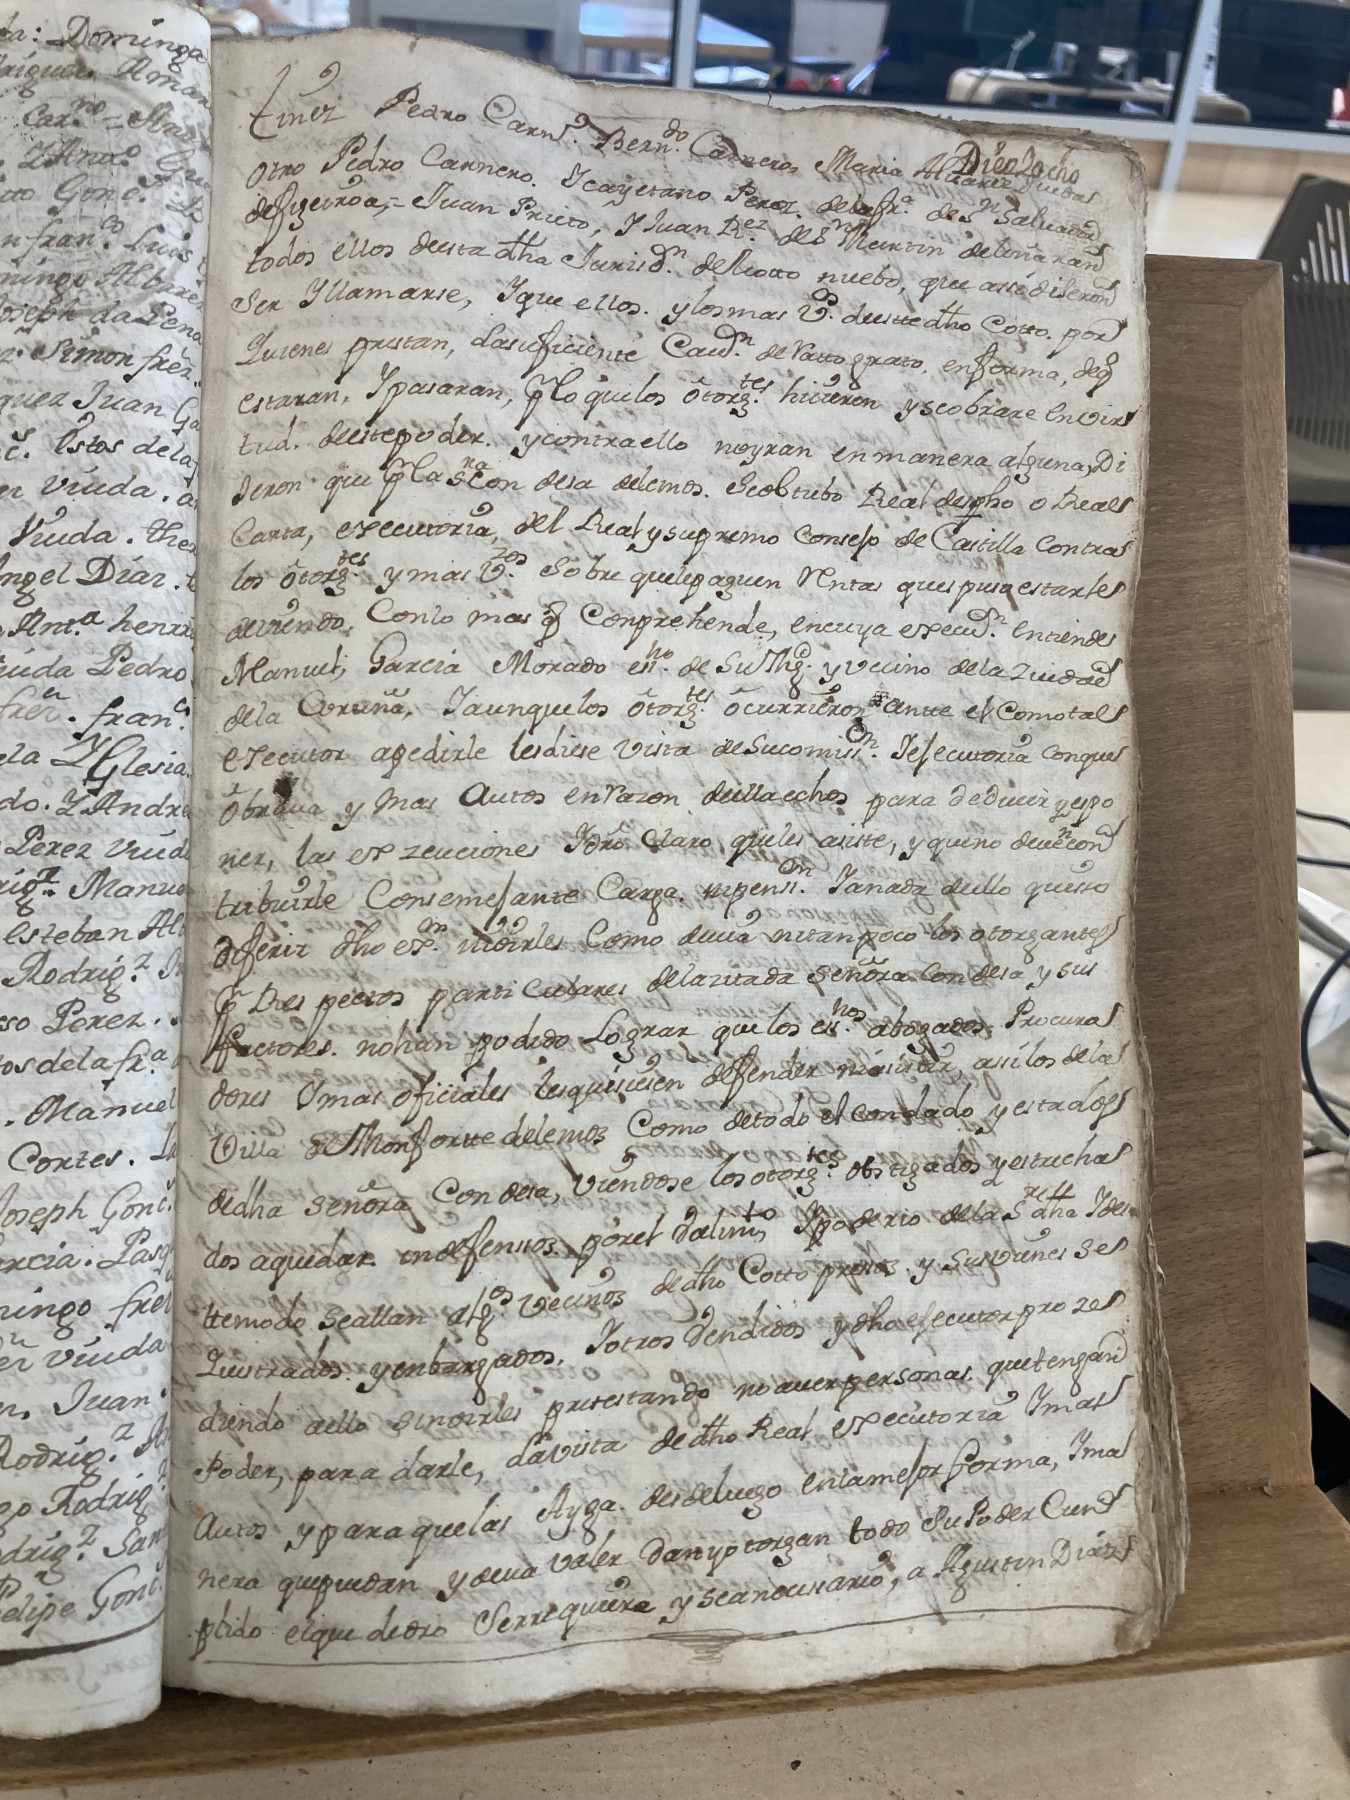 ta: Dominga
riguez. Aman
Car.no = Ant
. YAnto.
to Gonc.z
n fran.co Luis
mingo Albare
Joseph da Pena
z. Simon frez.
guez Juan Ga
Estos de la
er viuda. a
Viuda. ther
Angel Diaz.
Ant.a henrri
uida Pedro
frez. fran.co
ela Yglesia.
do. Y Andre
Perez viud
rig.z Manue
esteban Alb
Rodrig.z
so Perez.
tos dela fr.a
. Manuel
Cortes.
Joseph Gonc.
arcia. Pasq
mingo frez
er viuda
n. Juan
Rodrig.z
go Rodrig.z
odrig.z San
Felipe Gonc.

Diez Iocho
tinez Pedro Carn.o Bern.do Carnero, Maria Albarez viudas
otro Pedro Carnero. Icayetano Perez. dela fr.a de S.n Salvador
defigeiroa, = Juan Prieto, IJuan R.ez de S.n Martin
todos ellos deesta dha Jurisd.n del Cotto nuebo, que assi diJeron
Ser Yllamarse, Ique ellos. y los mas V.os deeste dho Cotto. por
Quienes prestan, la suficiente Cauz.n de Ratto grato, en forma, deq
estaran, Ipasaran, p lo quelos otorg.tes hicieren y se obrare En Vir
tud. deeste poder. y contra ello noyran en manera alguna, Di
Jeron que p la S.ra Condesa delemos. Se obtubo Real despho o Real
Carta, executoria, del Real y supremo Consejo de Castilla Contra
los otorg.tes y mas V.zos Sobre quele paguen Rentas que supuso estarle
deviendo, Con lo mas q Conprehende, en cuya execuz.n Entiende
Manuel, Garcia Morado essn.no de Su Mag.d y vecino dela Ziudad
dela Coruña, Iaunque los otorg.tes ocurrieron antte el Como tal
executor apedirle les diese vista de Su comiss.on Iejecutoria con que
obraua y mas Autos en Razon deello echos para deducir y espo
ner, las exzeuciones Idro Claro que les asiste, y que no deven con
tribuirle Con semejante Carga. ni pensi.on Ianada dello quiso
diferir dho ex.or ni oirles Como devia ni tanpoco los otorgantes
p Respectos particulares dela zitada señora Condesa y sus
factores. no han podido Lograr que los ess.nos abogados. Procura
dores Ymas oficiales les quisiesen defender ni asistir, asi los de la
Villa de Monfortte delemos Como detodo el condado, y estados
dedha señora Condesa, viendose los otorg.tes obstigados y estrecha
dos a quedar indefensos por el Valim.to Ipoderio dela S.ra dha Ides
ttemodo se allan alg.os vecinos dedho Cotto presos y sus vienes se
Questrados. y enbargados, Iotros Vendidos y dho ejecutor proze
diendo aello sin oirles protestando no aver personas que tengan
Poder, para darle, la vista dedho Real executoria Imas
Autos y para que las Ayga. desdeluego en la mejor forma, Ima
nera que puedan y deva valer dan y otorgan todo Su Poder Cun
plido el que de dro Se rrequiera y sea necesario, a Agustin Diaz